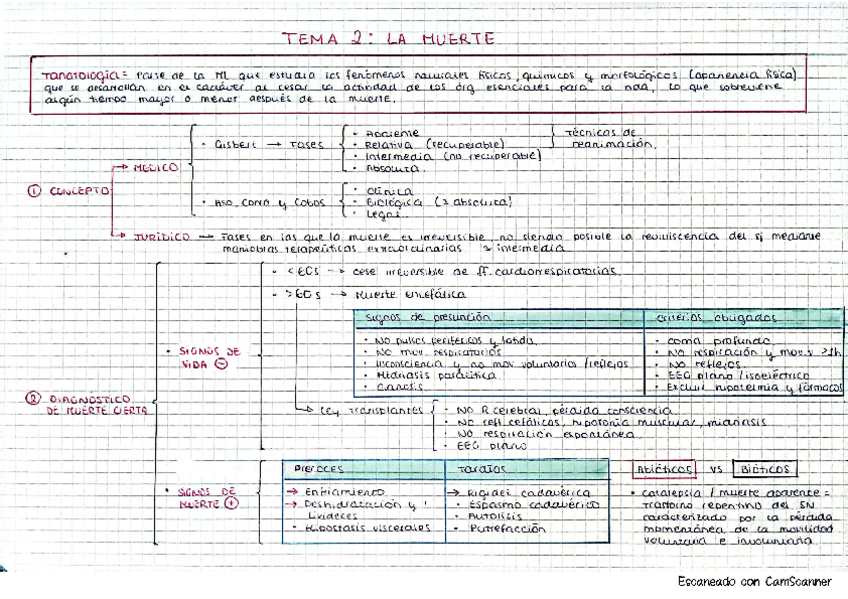 TEMA 2: LA MUERTE
Tanatología = Parte de la ML que estudia los fenómenos naturales físicos, químicos y morfológicos (apariencia física)
que se desarrollan en el cadáver al cesar la actividad de los órg esenciales para la vida, lo que sobreviene
algún tiempo mayor o menor después de la muerte.
① CONCEPTO
→ MEDICO
· Gisbert → FASES
· Aparente
· Relativa (recuperable)
· Intermedia (no recuperable)
· Absoluta.
Técnicas de
reanimación.
· Aso, Corro y Cobos
· Clínica
· Biológica (≃ absoluta)
· Legal.
→ JURÍDICO → Fases en las que la muerte es irreversible, no siendo posible la reviviscencia del sj mediante
maniobras terapéuticas extraordinarias ≃ intermedia
② DIAGNÓSTICO
DE MUERTE CIERTA
· SIGNOS DE
VIDA ⊖
· < ECs → cese irreversible de ff. cardiorrespiratorias.
· > ECs → Muerte Encefálica
Signos de presunción
· NO pulsos periféricos y latido.
· NO mov. respiratorios
· Inconsciencia y no mov voluntarios / reflejos
· Midriasis paralítica
· Cianosis
Criterios obligados
· Coma profundo.
· NO respiración y mov. v > 1h
· NO reflejos.
· EEG plano / isoeléctrico
· Excluir hipotermia y fármacos
→ Ley Transplantes
· NO R cerebral, pérdida consciencia
· NO refl. cefálicos, hipotonía muscular, midriasis
· NO respiración espontánea
· EEG plano
· SIGNOS DE
MUERTE ⊕
PRECOCES
→ Enfriamiento
→ Deshidratación y
Livideces
· Hipostasis viscerales
TARDÍOS
→ Rigidez cadavérica
· Espasmo cadavérico
· Autolisis
· Putrefacción
Abióticos vs Bióticos
· Catalepsia / muerte aparente =
Trastorno repentino del SN
caracterizado por la pérdida
momentánea de la movilidad
voluntaria e involuntaria.
Escaneado con CamScanner